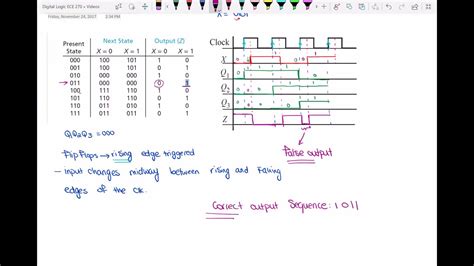 Digital Logic ECE 275 > Videos
Friday, November 24, 2017 2:34 PM
Present Next State Output (Z)
State X = 0 X = 1 X = 0 X = 1
000 100 101 1 0
001 100 101 0 1
010 000 000 1 0
011 000 000 0 1
100 111 110 1 0
101 110 110 0 1
110 011 010 1 0
111 011 011 0 1
Clock
X
Q1
Q2
Q3
Z
False output
Q1Q2Q3 = 000
Flip Flops → rising edge triggered
- Input changes midway between rising and falling
edges of the clk.
Correct output Sequence: 1011